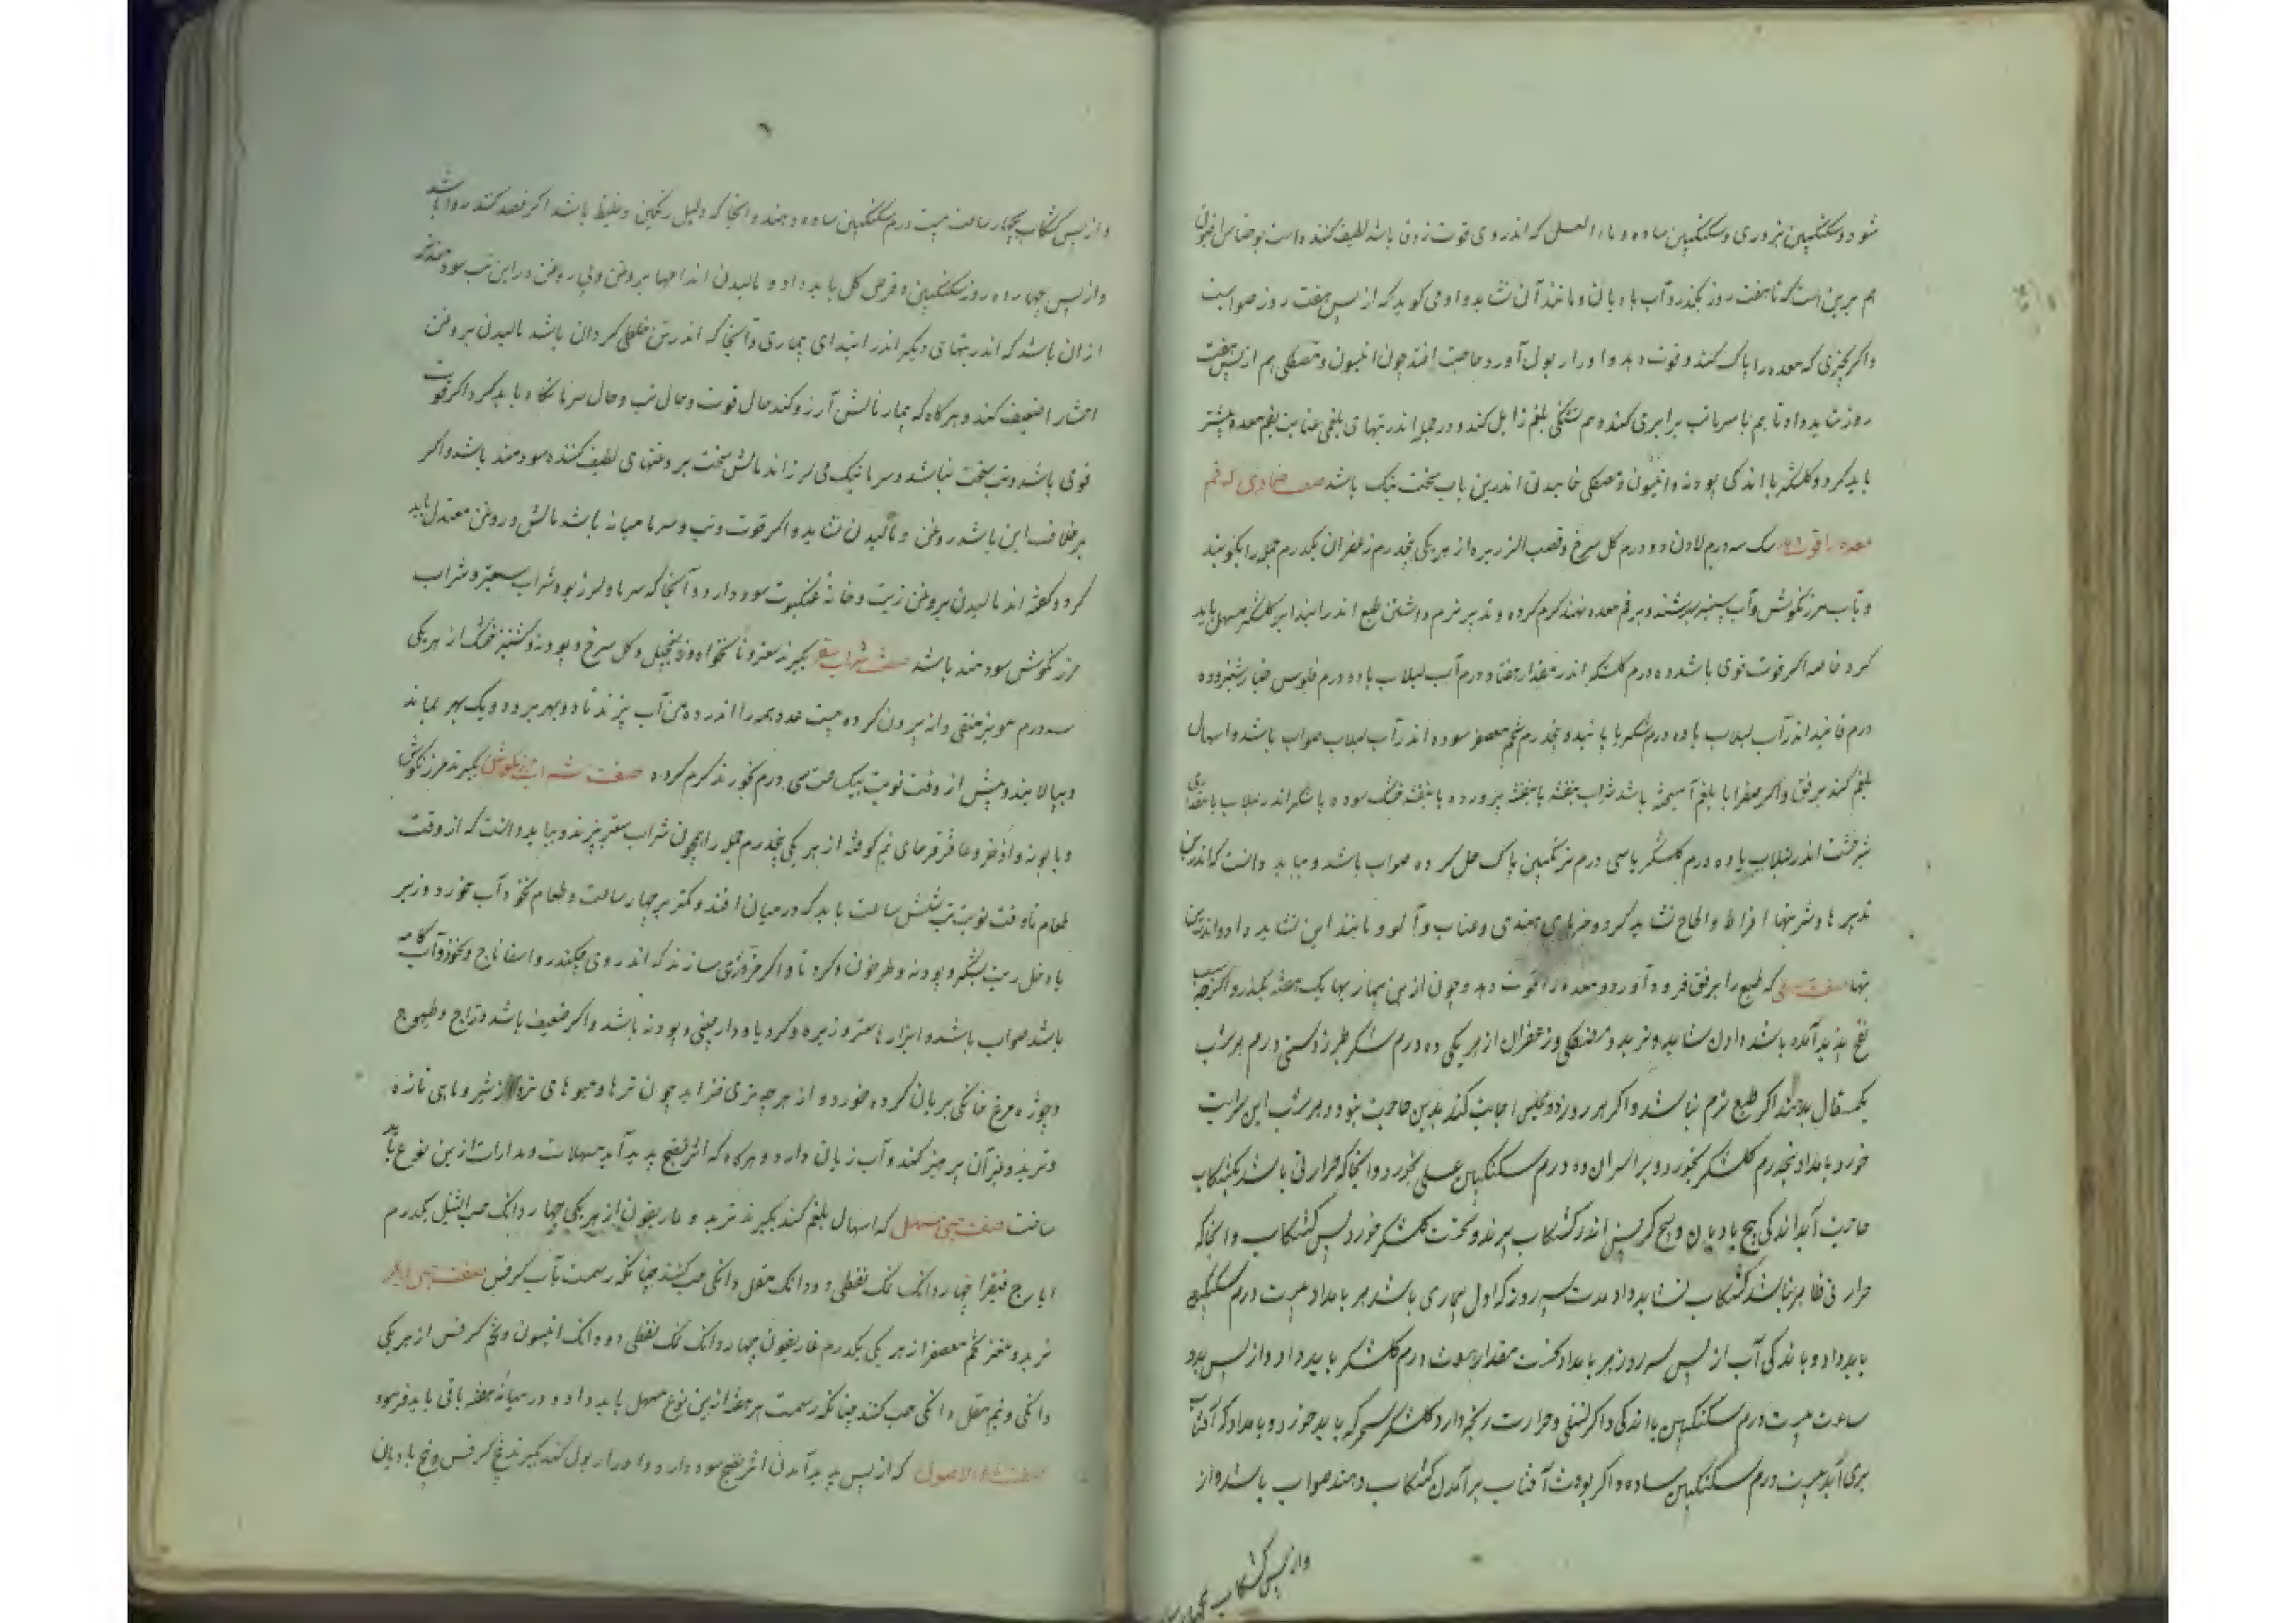 شود و سکنگبین بزوری و سکنگبین ساده و ماء العسل که اندر وی قوت زوفا باشد لطیف کننده است
هم برین است که تا هفت روز بگذرد آب بادیان و مانند آن نشاید داد و می کوید که از پس هفت روز صواب است
واکر چیزی که معده را پاک کند و قوت دهد و ادرار بول آورد حاجت افتد چون انیسون و مصطکی هم از پس هفت
روز شاید داد تا هم با سرما تب برابری کند و هم تشنکی بلغم زایل کند و در جمله اندر تبهای بلغمی عنایت بفم معده بیشتر
باید کرد و کلشکر با اندکی پودنه و انیسون و مصطکی خاییدن اندرین باب سخت نیک باشد صفت ضمادی که فم
معده را قوت دهد سک سه درم لادن دو درم کل سرخ و قصب الزریره از هر یکی پنجدرم زعفران یکدرم جمله را بکوبند
و بآب مرزنکوش و آب بسرشند و بر فم معده نهند کرم کرده و تدبیر نرم داشتن طبع اندر ابتدا کلشکر مسهل باید
کرد خاصه اکر قوت قوی باشد ده درم کلشکر اندر مقدار هفتاد درم آب لبلاب با ده درم فلوس خیارشنبر و ده
درم فانید اندر آب لبلاب با ده درم شکر یا پانید و پنجدرم تخم معصفر سوده اندر آب لبلاب صواب باشد و اسهال
بلغم کند برفق واکر صفرا با بلغم آمیخته باشد شراب بنفشه یا بنفشه پرورده یا بنفشه خشک سوده با شکر اندر لبلاب با مقداری
شیرخشت اندر لبلاب با ده درم کلشکر یا سی درم ترنکبین پاک حل کرده صواب باشد و بباید دانست که اندرین
تدبیرها و شربتها افراط و الحاح نشاید کرد و خرمای هندی و عناب و آلو و مانند این نشاید داد و اندرین
تبها صفت که طبع را برفق فرود آورد و معده را قوت دهد و چون ازین بیماریها یک هفته بگذرد اکرچه
نضج پدید آمده باشد دادن شاید و تربد و مصطکی و زعفران از هر یکی ده درم شکر طبرزد سی درم هر شب
یکمثقال بدهند اکر طبع نرم نباشد و اکر هر روز دو مجلس اجابت کند بدین حاجت نبود و هر شب این شربت
خورد بامداد پنجدرم کلشکر بخورد و بر اثر آن ده درم سکنکبین عسلی بخورد و آنجا که حرارتی باشد بکشکاب
حاجت آید اندکی بیخ بادیان و بیخ کرفس اندر کشکاب بپزند و نخست کلشکر خورد پس کشکاب و آنجا که
حرارتی ظاهر نباشد کشکاب نشاید داد مدت سه روز که اول بیماری باشد هر بامداد بیست درم سکنکبین
باید داد و با اندکی آب از پس سه روز هر بامداد نخست مقدار درم کلشکر باید داد و از پس بدو
ساعت بیست درم سکنکبین با اندکی واکر تشنکی و حرارت رنجه دارد کلشکر سحرکه باید خورد و بامداد که آفتاب
برمی آید بیست درم سکنکبین ساده و اکر بوقت آفتاب برآمدن کشکاب دهند صواب باشد و از
واز پس کشکاب بچهار
واز پس کشکاب بچهار ساعت بیست درم سکنکبین ساده دهند و آنجا که دلیل رنکین و غلیظ باشد اکر فصد کنند روا باشد
و از پس چهارده روز سکنکبین و قرص کل باید داد و مالیدن اندامها بروغن و بی روغن در این تب سودمندتر
از آن باشد که اندر تبهای دیکر اندر ابتدای بیماری و تا آنجا که اندر تن خلطی کردان باشد مالیدن بروغن
احشا را ضعیف کند و هر کاه که بیمار مالش آرزو کند حال قوت و حال تب و حال سرما نکاه باید کرد اکر قوت
قوی باشد و تب سخت نباشد و سرما نیک می لرزاند مالش سخت بروغنهای لطیف کننده سودمند باشد و اکر
بر خلاف این باشد روغن و مالیدن نشاید و اکر قوت و تب و سرما میانه باشد مالش و روغن معتدل باید
کرد و کفته اند مالیدن بروغن زیت و خانه عنکبوت سود دارد و آنجا که سرما و لرز بود شراب سعتر و شراب
مرزنکوش سودمند باشد صفت شراب سعتر بکیرند سعتر و نانخواه و زنجبیل و کل سرخ و پودنه و کشنیز خشک از هر یکی
سه درم مویز منقی دانه بیرون کرده بیست عدد همه را اندر ده من آب پزند تا دو بهر برود و یک بهر بماند
و بپالایند و پیش از وقت نوبت بیک ساعت سی درم بخورند کرم کرده صفت شراب مرزنکوش بکیرند مرزنکوش
و بابونه و اذخر و عاقرقرحای نیم کوفته از هر یکی پنجدرم جمله را همچون شراب سعتر بپزند و بباید دانست که از وقت
طعام تا وقت نوبت تب شش ساعت باید که در میان افتد و کمتر بر چهار ساعت و طعام نخود آب خورد و زیر
با و خل زیت بشکر و پودنه و طرخون و کرویا و اکر مزوری سازند که اندر وی چکندر و اسفاناج و نخود و آب کامه
باشد صواب باشد و ابزارها سعتر و زیره و کرویا و دارچینی و پودنه باشد و اکر ضعیف باشد دراج و طیهوج
و جوژه مرغ خانکی بریان کرده خورد و از هرچه تری فزاید چون ترها و میوهای تر و شیر و ماهی تازه
و ترید و غیر آن پرهیز کند و آب زیان دارد و هر کاه که اثر نضج پدید آید مسهلات و مدارات ازین نوع باید
ساخت صفت حبی مسهل که اسهال بلغم کند بکیرند تربد و غاریقون از هر یکی چهار دانک حب النیل یکدرم
ایارج فیقرا چهار دانک نمک نفطی دو دانک مقل دانکی حب کنند چنانکه رسمست بآب کرفس صفت حبی دیکر
تربد و مغز تخم معصفر از هر یکی یکدرم غاریقون چهار دانک نمک نفطی دو دانک انیسون و تخم کرفس از هر یکی
دانکی و نیم مقل دانکی حب کنند چنانکه رسمست هر هفته ازین نوع مسهل باید داد و در میانه هفته باقی باید فرمود
صفت ماء الاصول که از پس پدید آمدن اثر نضج سود دارد و ادرار بول کند بکیرند بیخ کرفس و بیخ بادیان